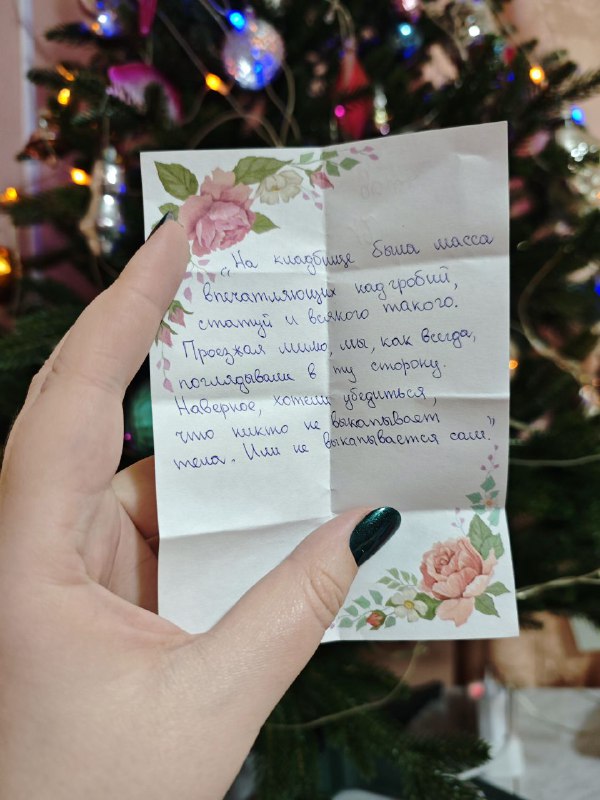 "На кладбище была масса
впечатляющих надгробий,
статуй и всякого такого.
Проезжая мимо, мы, как всегда,
поглядывали в ту сторону.
Наверное, хотели убедиться,
что никто не выкапывает
тела. Или не выкапывается сам."